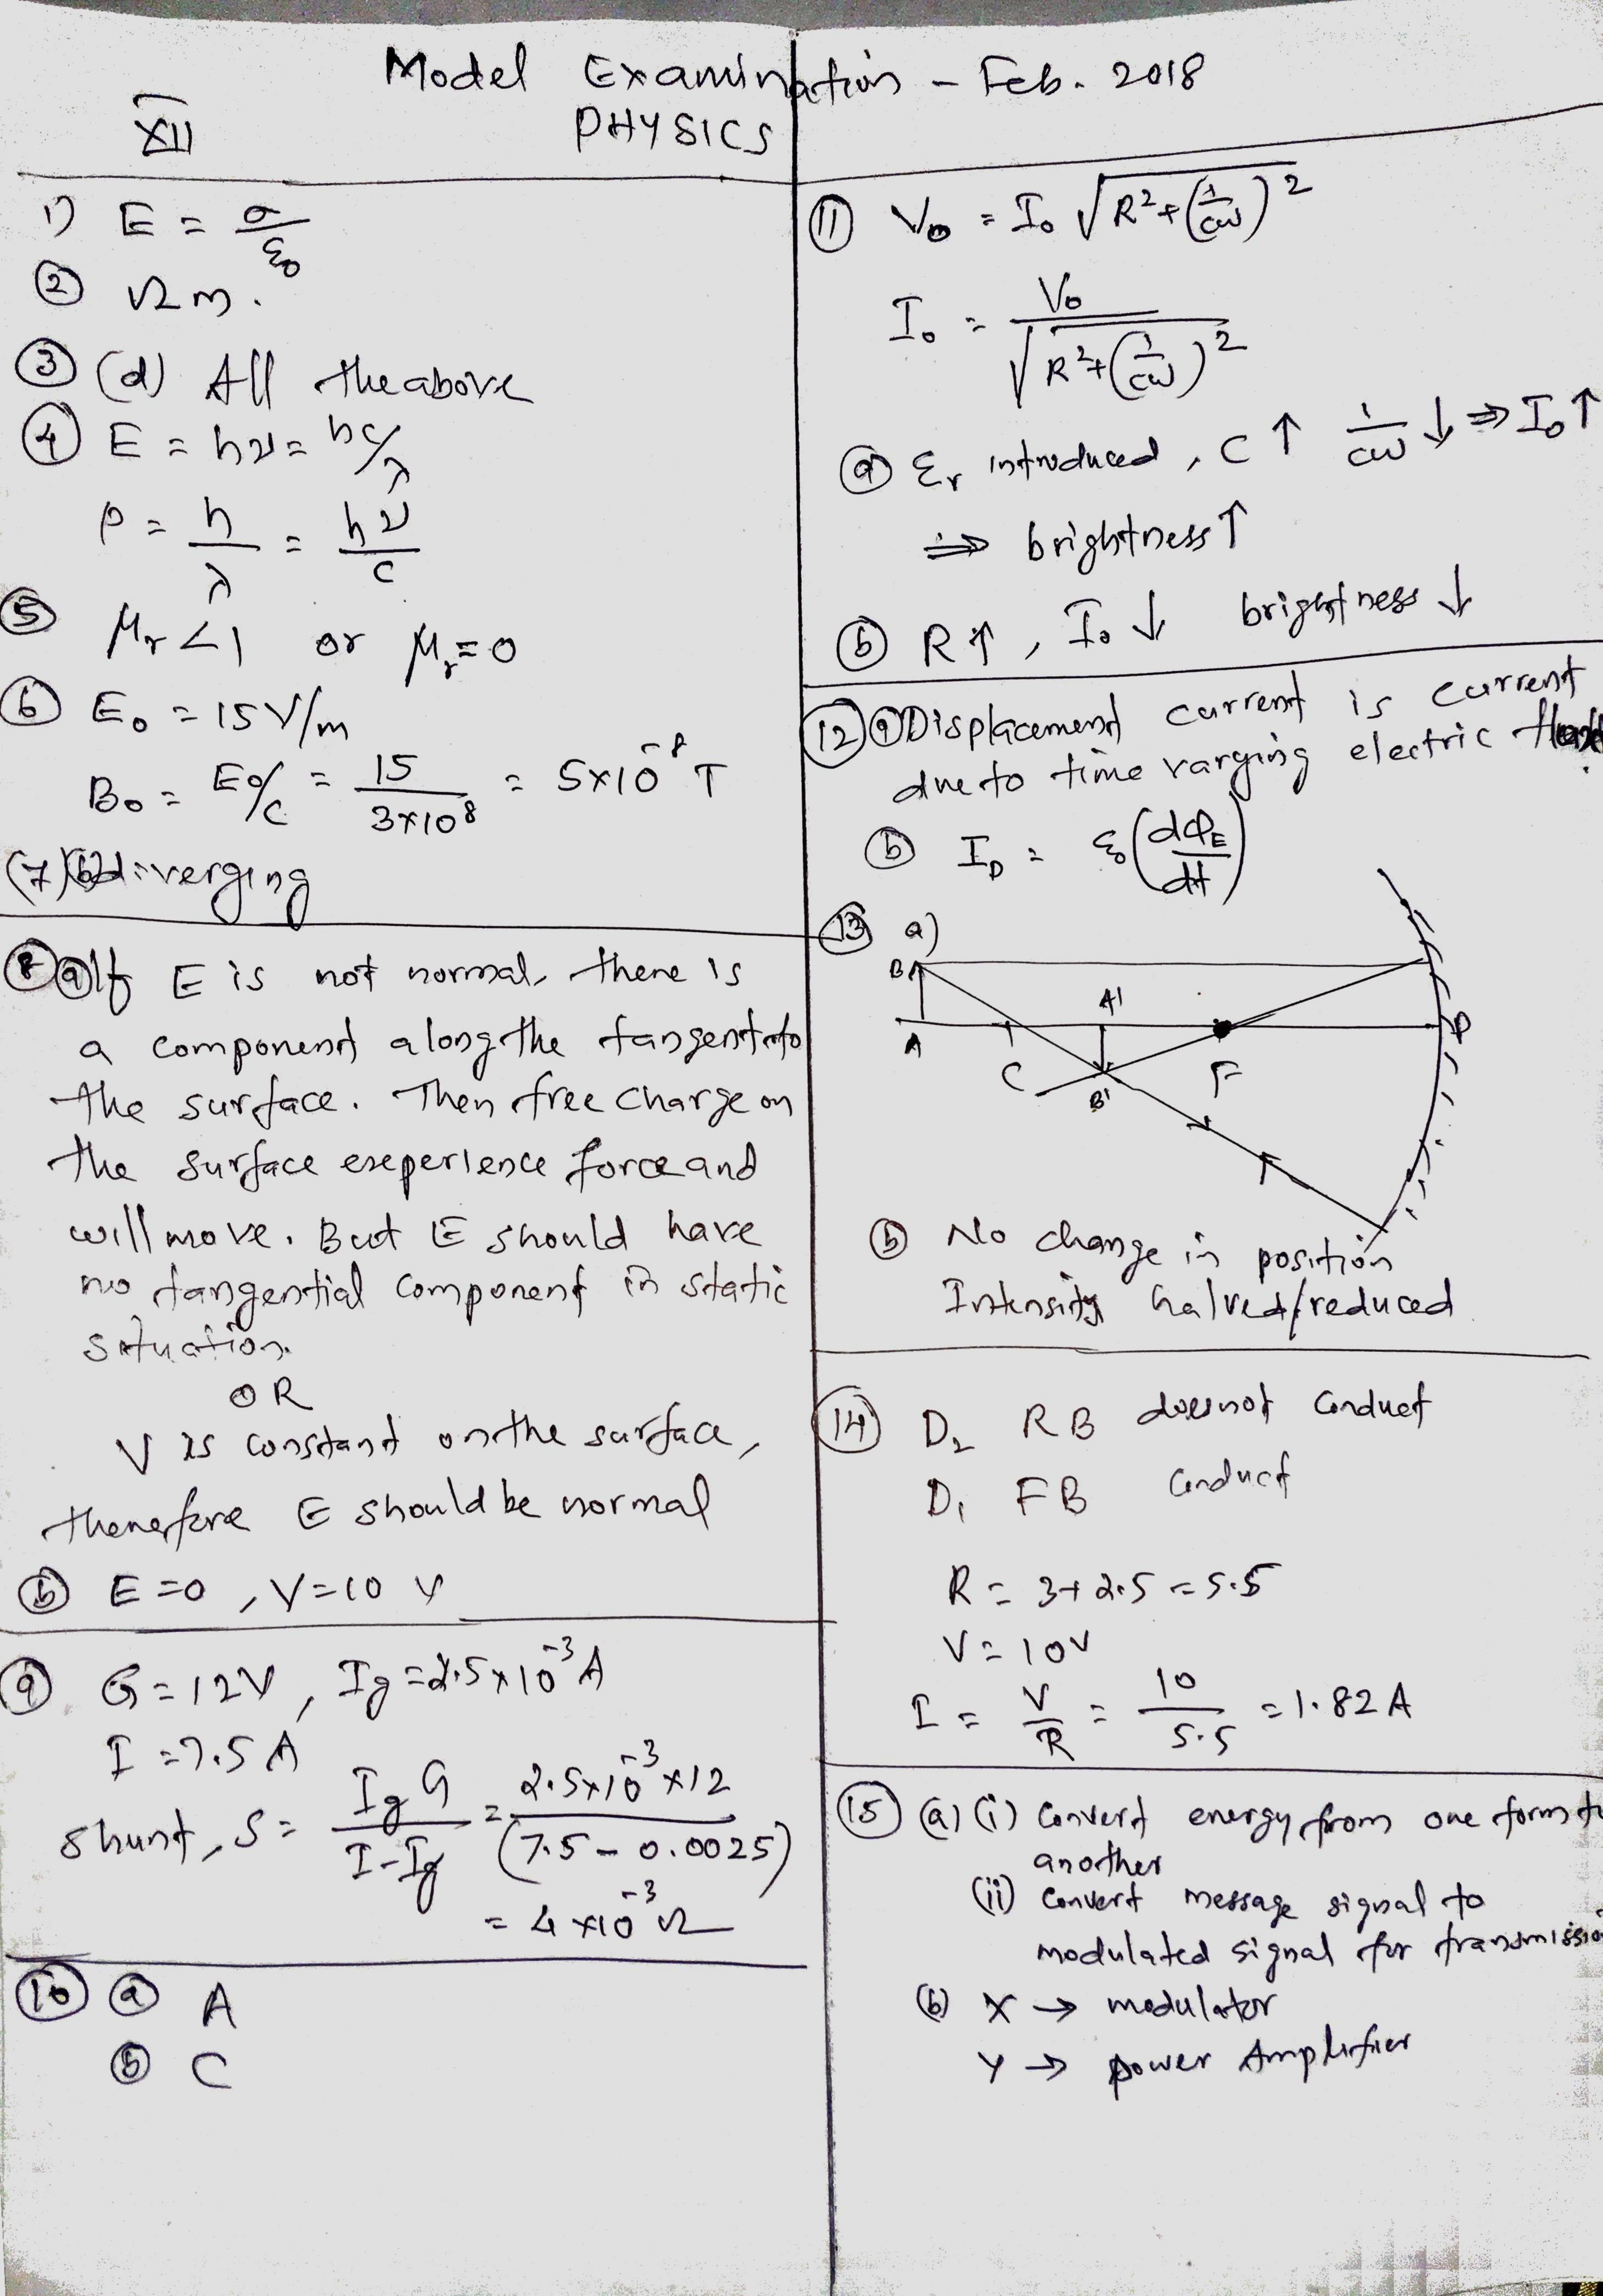 Model Examination - Feb. 2018
XII
PHYSICS
1) E = σ/ε₀
② Ω m.
③ (d) All the above
④ E = hν = hc/λ
p = h/λ = hν/c
⑤ μᵣ < 1 or μᵣ = 0
⑥ E₀ = 15 V/m
B₀ = E₀/c = 15/3×10⁸ = 5×10⁻⁸ T
(7) diverging
⑧ ⓐ If E is not normal, there is
a component along the tangent to
the surface. Then free charge on
the surface experience force and
will move. But E should have
no tangential component in static
situation.
OR
V is constant on the surface,
therefore E should be normal
ⓑ E = 0, V = 10 V
⑨ G = 12V, Ig = 2.5×10⁻³ A
I = 7.5 A
shunt, S = Ig G/I-Ig = 2.5×10⁻³×12/(7.5 - 0.0025)
= 4×10⁻³ Ω
⑩ ⓐ A
ⓑ C
⑪ V₀ = I₀ √R²+(1/cω)²
I₀ = V₀/√R²+(1/cω)²
ⓐ εᵣ introduced, C ↑ 1/cω ↓ ⇒ I₀ ↑
⇒ brightness ↑
ⓑ R ↑, I₀ ↓ brightness ↓
⑫ ⓐ Displacement current is current
due to time varying electric
ⓑ I_D = ε₀(dφ_E/dt)
⑬ a)
B
A
C
A'
B'
F
P
ⓑ No change in position
Intensity halved/reduced
⑭ D₂ RB does not conduct
D₁ FB conduct
R = 3+2.5 = 5.5
V = 10V
I = V/R = 10/5.5 = 1.82 A
⑮ (a) (i) Convert energy from one form to
another
(ii) Convert message signal to
modulated signal for transmission
(b) X → modulator
Y → power Amplifier